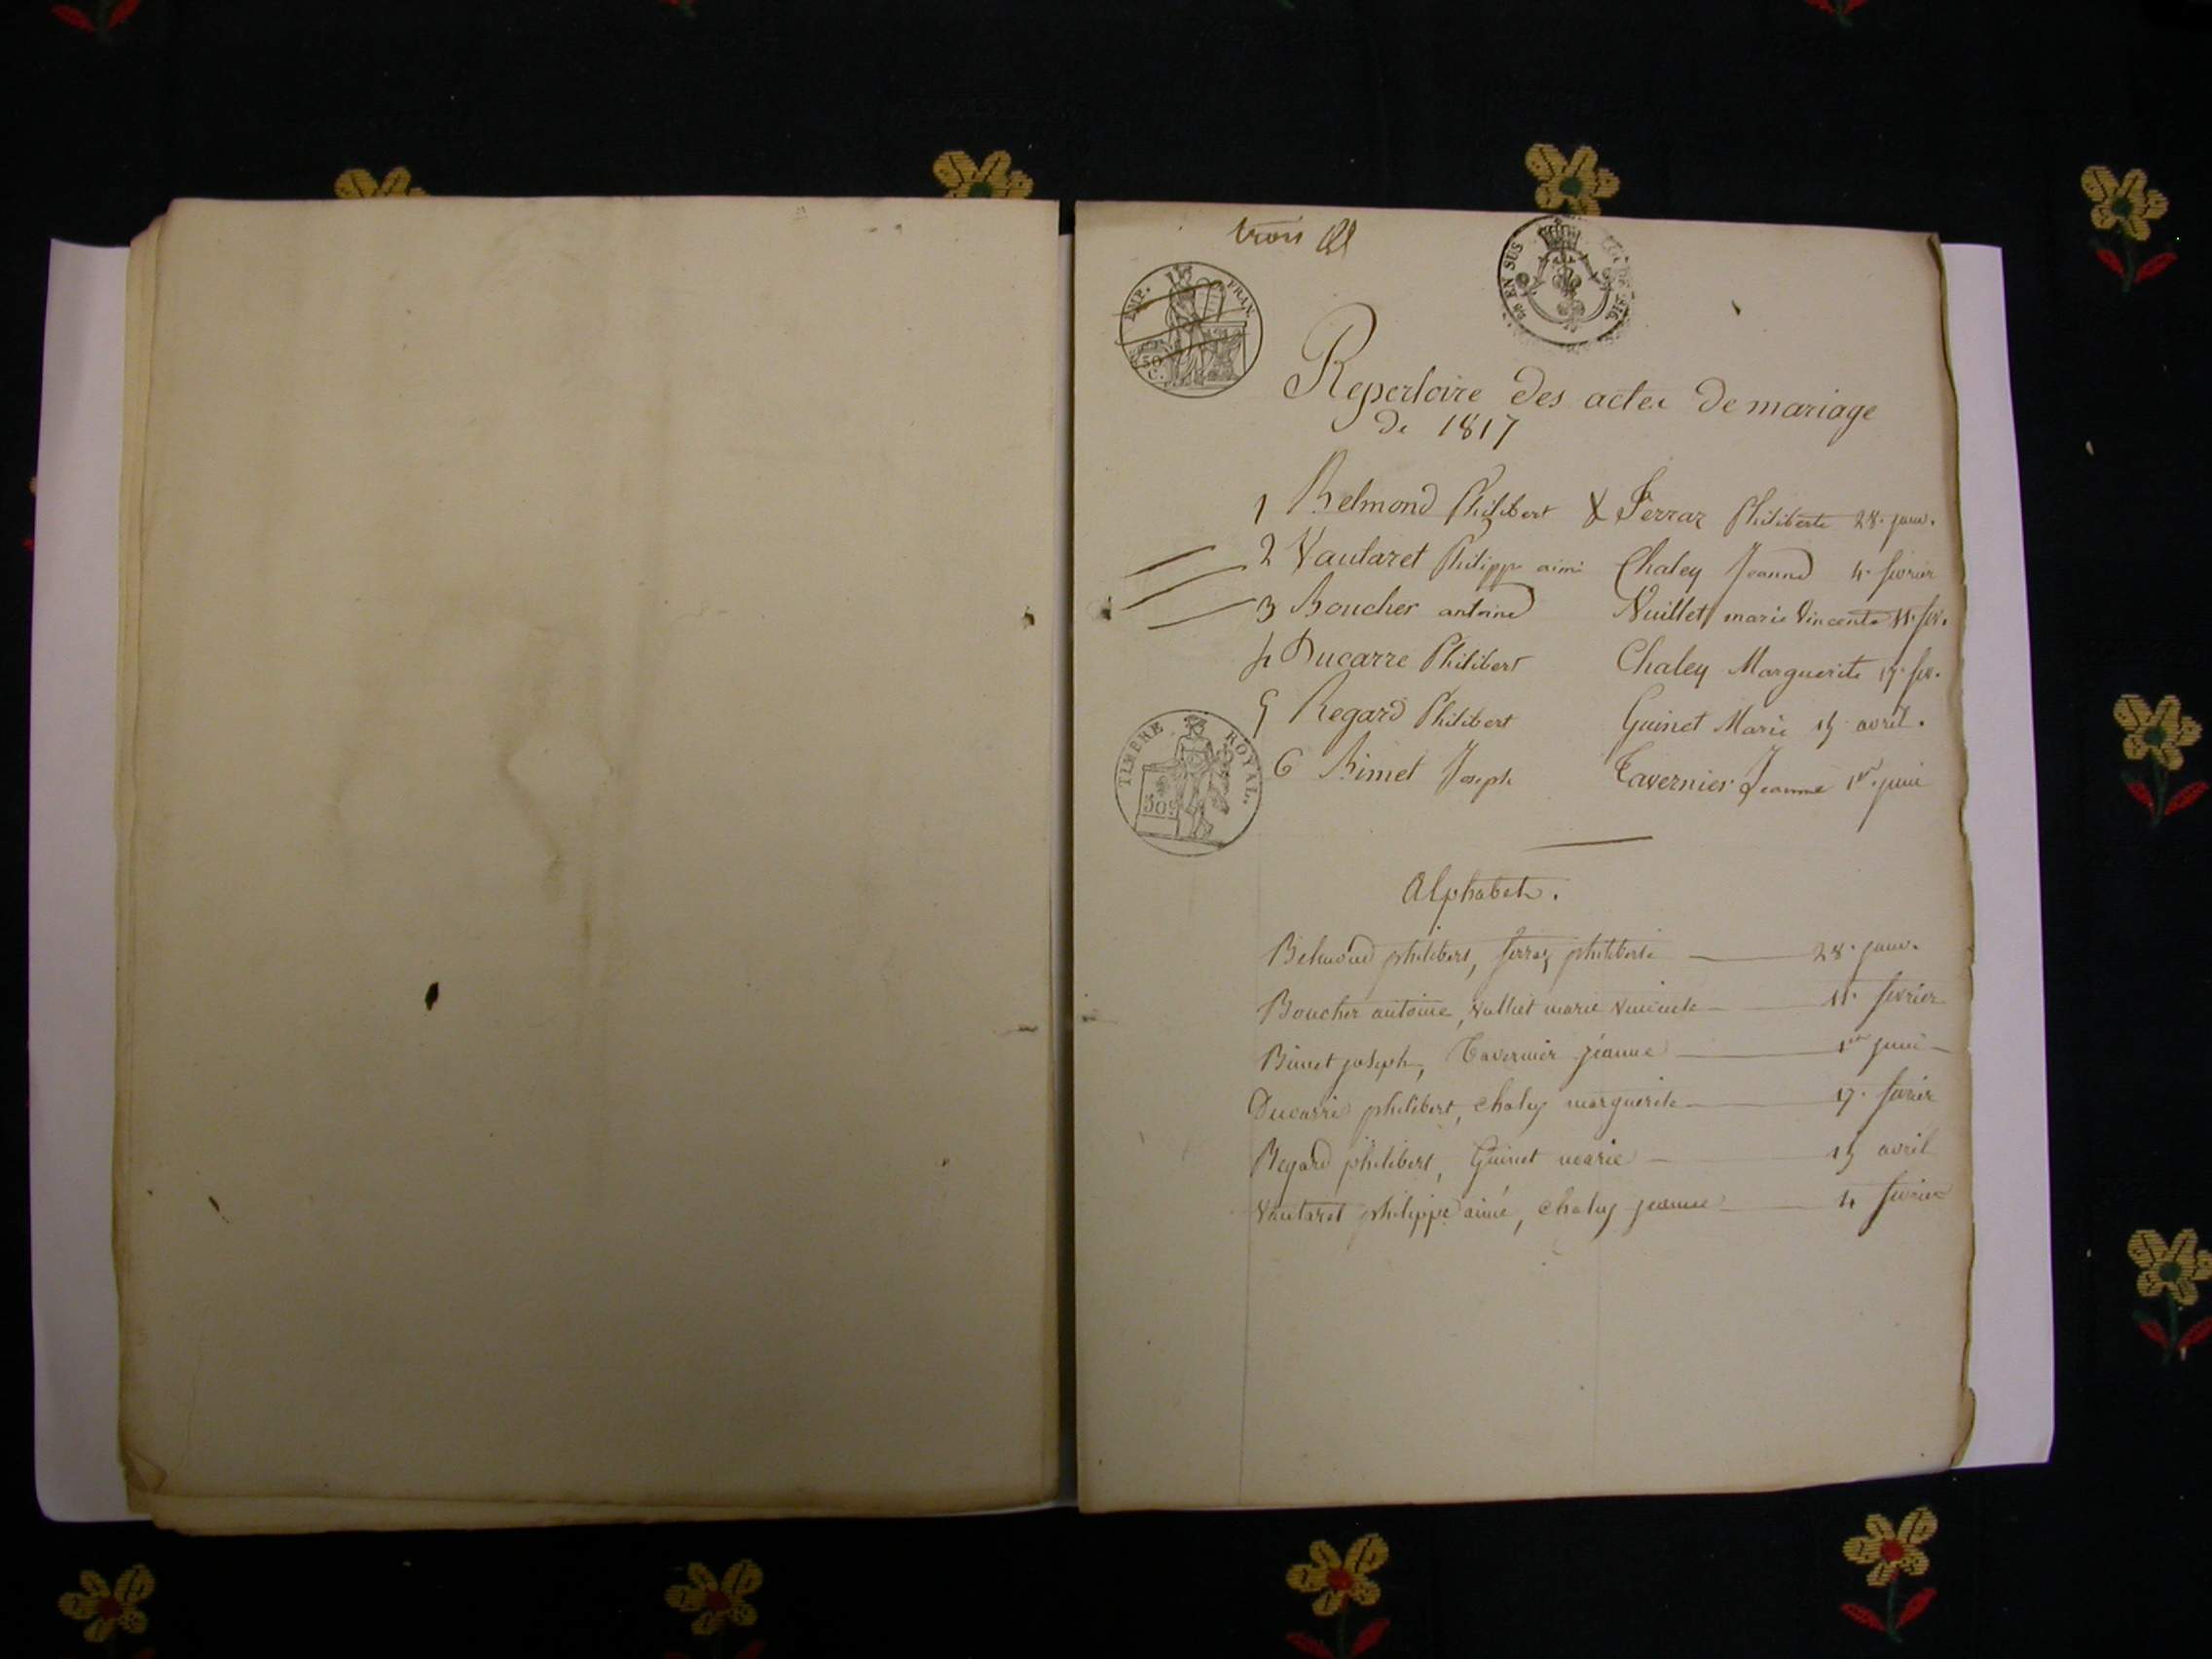 trois
IMP. FRAN.
50 C.
EN SUS
Repertoire des actes de mariage
de 1817
1 Belmond Philibert & Ferraz Philiberte 28. janv.
2 Vautaret Philippe aimé Chaley Jeanne 4. fevrier
3 Boucher antoine Vulliet marie Vincente 11. fev.
4 Ducarre Philibert Chaley Marguerite 17. fev.
5 Regard Philibert Guinet Marie 15 avril.
TIMBRE ROYAL.
50c
6 Bimet Joseph Tavernier Jeanne 1er. juin
Alphabet.
Belmond philibert, ferraz philiberte 28. janv.
Boucher antoine, Vulliet marie Vincente 11. fevrier
Bimet joseph, Tavernier jeanne 1er juin
Ducarre philibert, chaley marguerite 17. fevrier
Regard philibert, Guinet marie 15 avril
Vautaret philippe aimé, chaley jeanne 4 fevrier